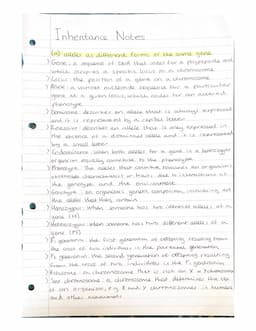 Inheritance Notes
(a) alleles as different forms of the same gene
> Gene: a sequence of DNA that codes for a polypeptide and
which occupies a specific locus on a chromosome
> Locus: the position of a gene on a chromosome
> Allele: a variant nucleotide sequence for a particular
gene at a given locus, which codes for an altered
phenotype
> Dominant: describes an allele that is always expressed
and it is represented by a capital letter
> Recessive: describes an allele that is only expressed in
the absence of a dominant allele and it is represented
by a small letter
> Codominance: when both alleles for a gene in a heterozygous
organism equally contribute to the phenotype
> Phenotype: the alleles that contribute towards an organism's
observable characteristics or traits due to interactions of
the genotype and the environment
> Genotype: An organism's genetic composition, including all
the alleles that they contain
> Homozygous: When someone has two identical alleles of a
gene
> Heterozygous: when someone has two different alleles of a
gene
> F₁ generation: the first generation of offspring resulting from
the cross of two individuals in the parental generation
> F₂ generation: the second generation of offspring resulting
from the cross of two individuals in the F₁ generation
chromosome that is not an X or Y chromosome
> Sex chromosome: a chromosome that determines the sex
of an organism, e.g. X and Y chromosomes in humans
and other mammals